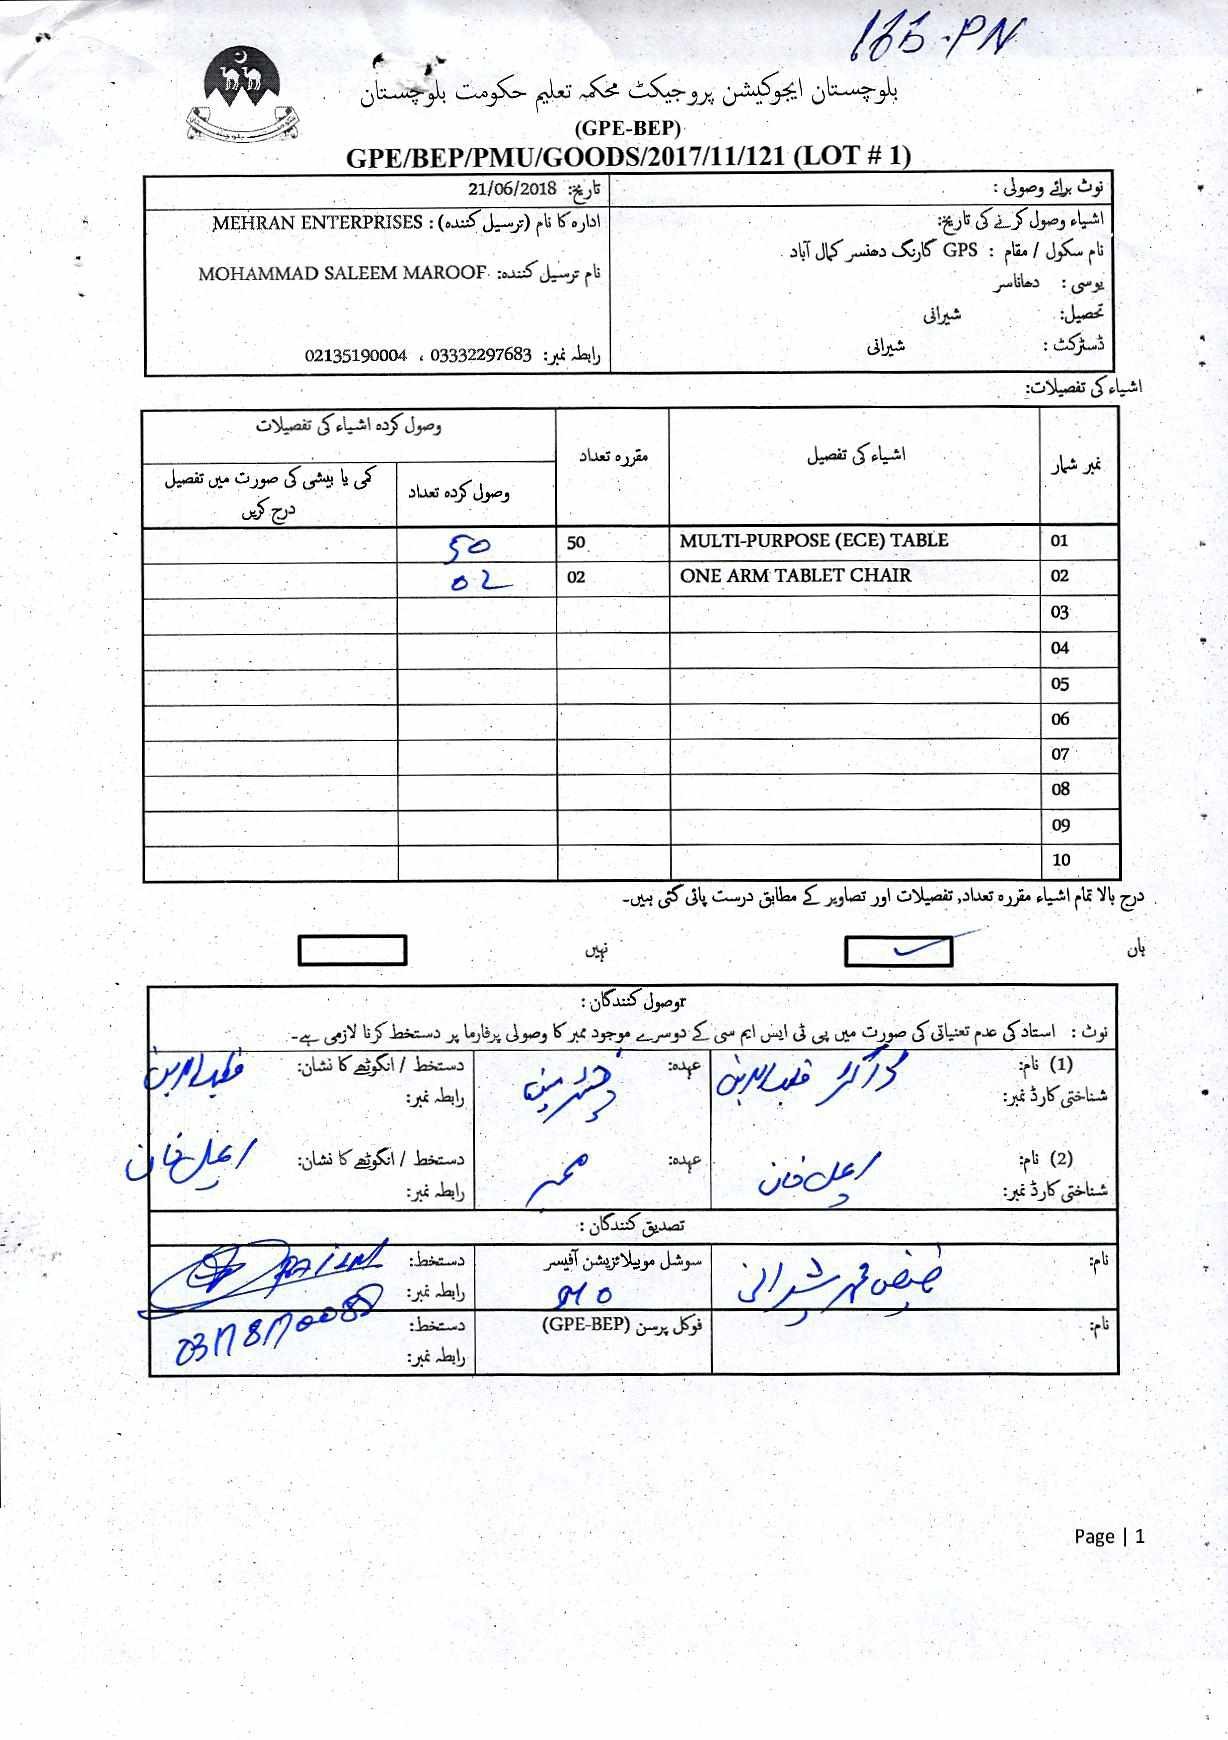 166-PN
بلوچستان ایجوکیشن پروجیکٹ محکمہ تعلیم حکومت بلوچستان
(GPE-BEP)
GPE/BEP/PMU/GOODS/2017/11/121 (LOT # 1)
نوٹ برائے وصولی :
تاریخ: 21/06/2018
اشیاء وصول کرنے کی تاریخ:
ادارہ کا نام (ترسیل کنندہ) : MEHRAN ENTERPRISES
نام سکول / مقام : GPS گارنگ دھنسر کمال آباد
نام ترسیل کنندہ: MOHAMMAD SALEEM MAROOF
یوسی : دھاناسر
تحصیل: شیرانی
ڈسٹرکٹ : شیرانی
رابطہ نمبر: 03332297683 ، 02135190004
اشیاء کی تفصیلات:
نمبر شمار اشیاء کی تفصیل مقررہ تعداد وصول کردہ اشیاء کی تفصیلات
وصول کردہ تعداد کمی یا بیشی کی صورت میں تفصیل
درج کریں
01 MULTI-PURPOSE (ECE) TABLE 50 50
02 ONE ARM TABLET CHAIR 02 02
03
04
05
06
07
08
09
10
درج بالا تمام اشیاء مقررہ تعداد, تفصیلات اور تصاویر کے مطابق درست پائی گئی ہیں۔
ہاں نہیں
وصول کنندگان :
نوٹ : استاد کی عدم تعیناتی کی صورت میں پی ٹی ایس ایم سی کے دوسرے موجود ممبر کا وصولی پرفارما پر دستخط کرنا لازمی ہے۔
(1) نام: قطب الدین عہدہ: چئیرمین دستخط / انگوٹھے کا نشان: قطب الدین
شناختی کارڈ نمبر: رابطہ نمبر:
(2) نام: خان عہدہ: ممبر دستخط / انگوٹھے کا نشان: خان
شناختی کارڈ نمبر: رابطہ نمبر:
تصدیق کنندگان :
نام: شیرانی سوشل موبیلائزیشن آفیسر دستخط:
رابطہ نمبر:
نام: فوکل پرسن (GPE-BEP) دستخط:
رابطہ نمبر:
Page | 1